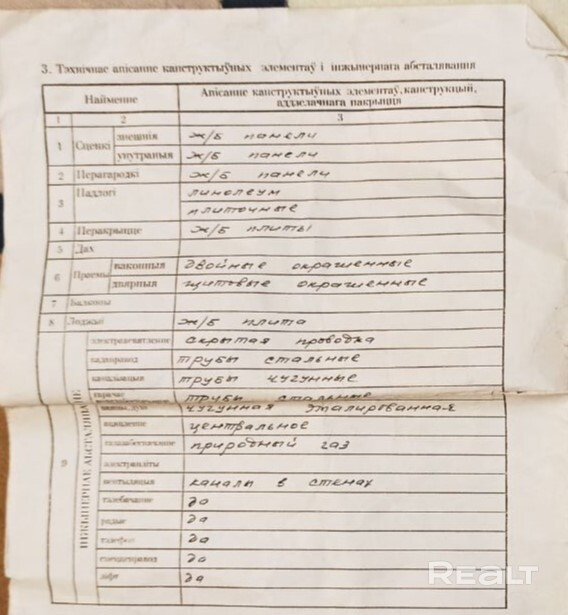 3. Тэхнічнае апісанне канструктыўных элементаў і інжынернага абсталявання
Найменне
Апісанне канструктыўных элементаў, канструкцый,
аддзелачнага пакрыцця
1 2 3
1 Сцены знешнія ж/б панели
унутраныя ж/б панели
2 Перагародкі ж/б панели
3 Падлогі линолеум
плиточные
4 Перакрыцце ж/б плиты
5 Дах
6 Праёмы ваконныя двойные окрашенные
дзвярныя щитовые окрашенные
7 Балконы
8 Лоджыі ж/б плита
9 ІНЖЫНЕРНАЕ АБСТАЛЯВАННЕ
электраасвятленне скрытая проводка
вадаправод трубы стальные
каналізацыя трубы чугунные
гарачае трубы стальные
ванны, душ чугунная эмалированная
ацяпленне центральное
газазабеспячэнне природный газ
электрапліты
вентыляцыя каналы в стенах
тэлебачанне да
радыё да
тэлефон да
смеццеправод да
ліфт да
Realt